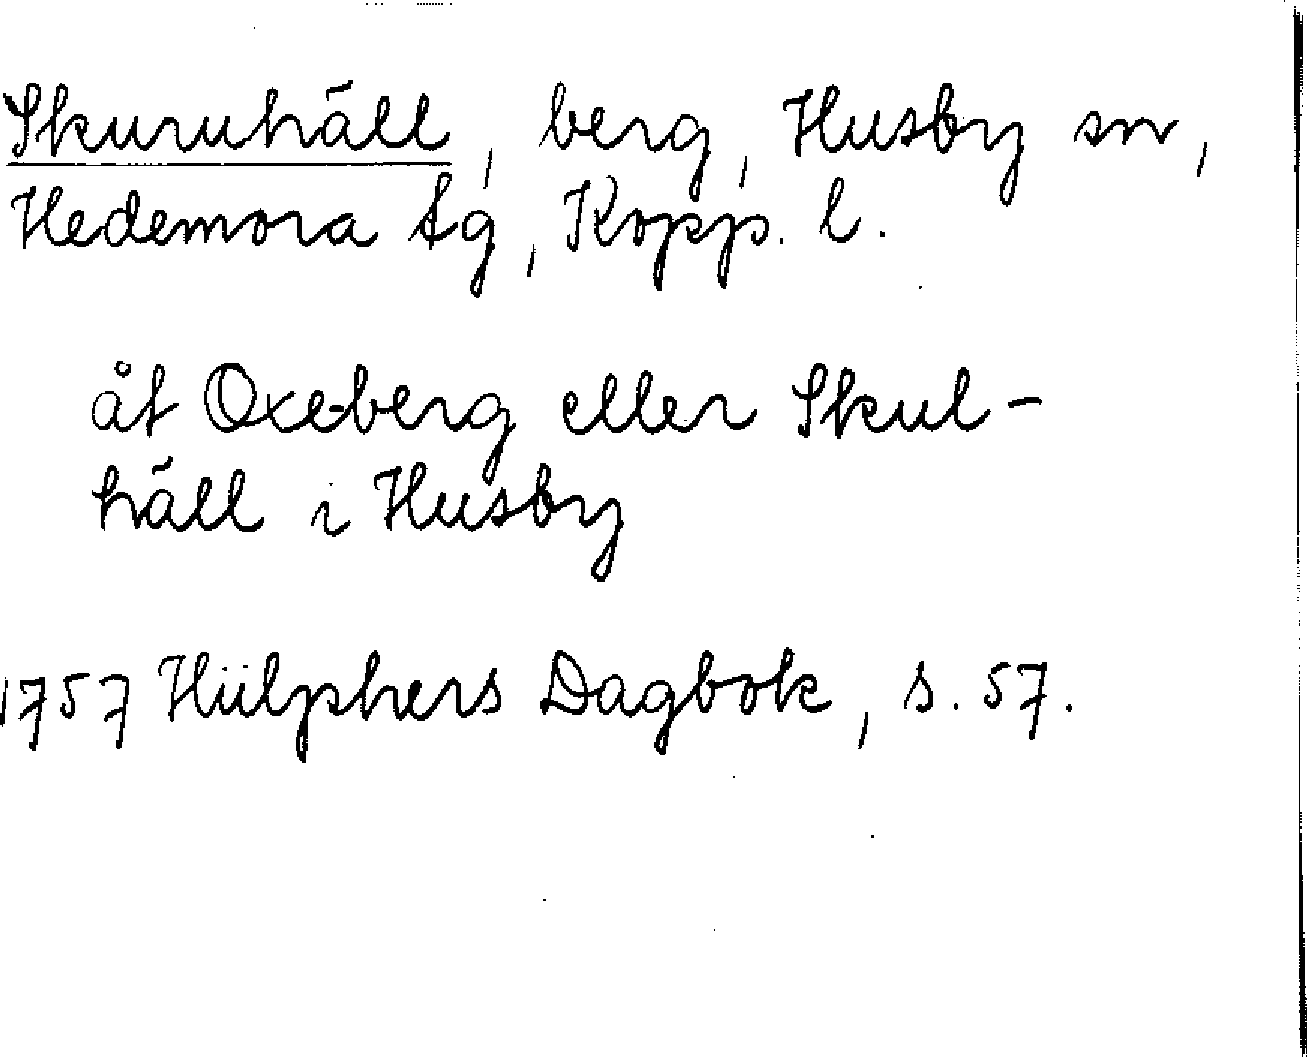 Skuruhäll, berg, Husby sn,
Hedemora tg, Kopp. l.
åt Oxeberg eller Skul-
häll i Husby
1757 Hülphers Dagbok, s. 57.